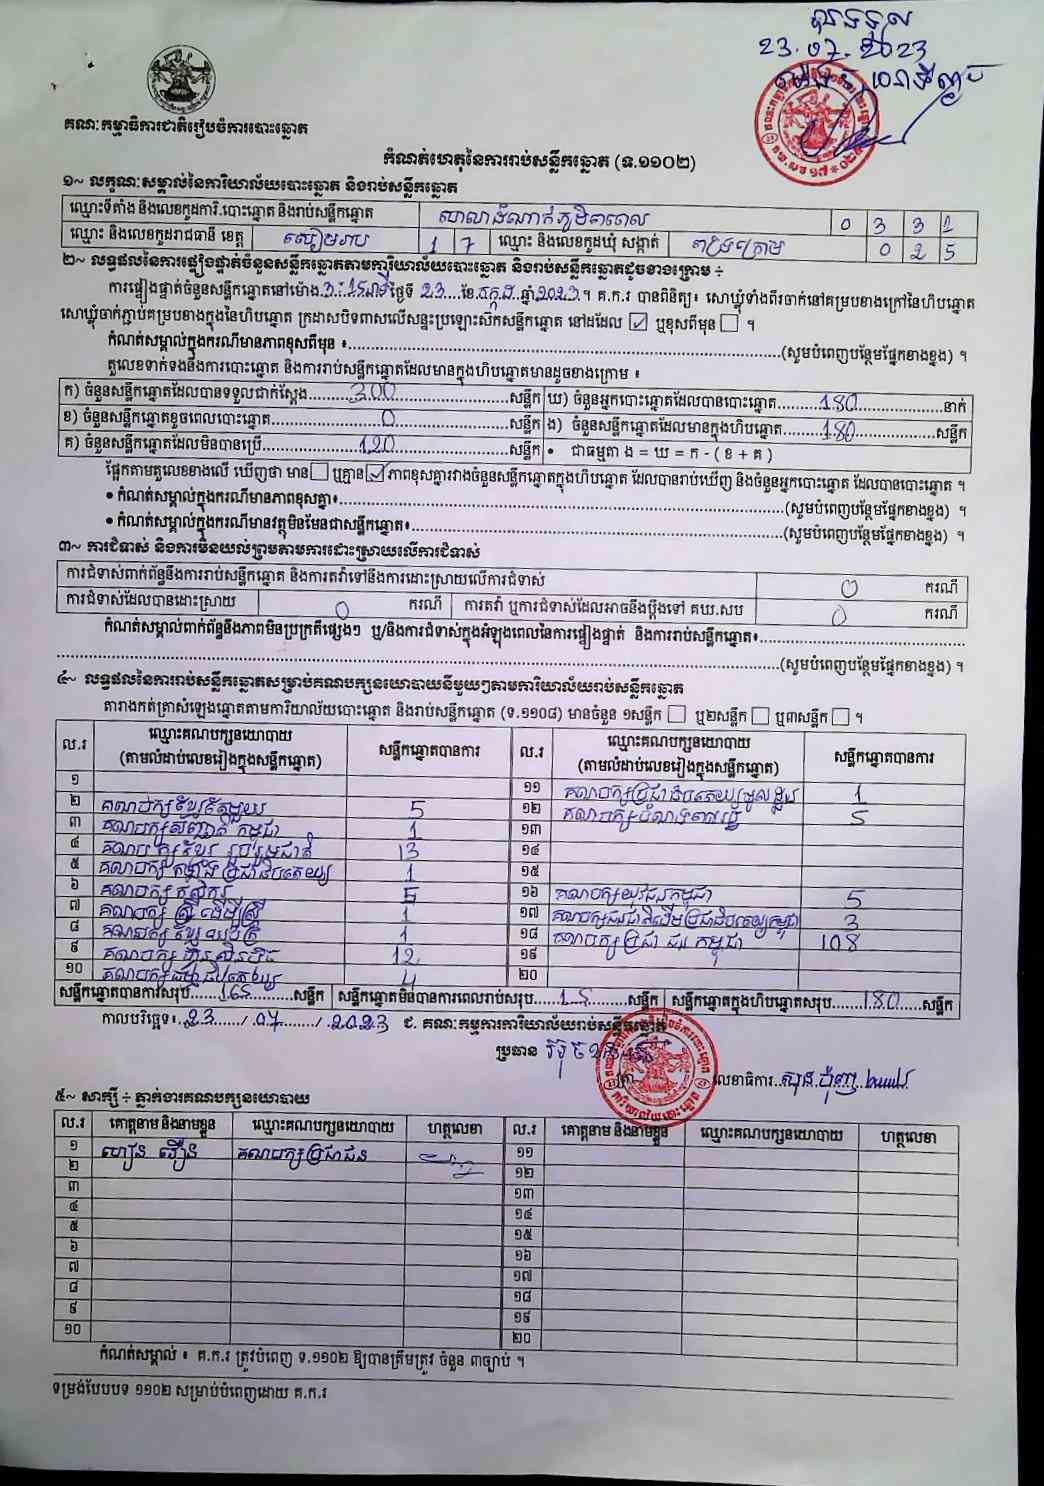 ទទួល
23.07.2023
គណៈកម្មាធិការជាតិរៀបចំការបោះឆ្នោត
កំណត់ហេតុនៃការរាប់សន្លឹកឆ្នោត (ទ.១១០២)
១~ លក្ខណៈសម្គាល់នៃការិយាល័យបោះឆ្នោត និងរាប់សន្លឹកឆ្នោត
ឈ្មោះទីតាំង និងលេខកូដការិ.បោះឆ្នោត និងរាប់សន្លឹកឆ្នោត សាលាដំណាក់ភូមិ 0 3 3 2
ឈ្មោះ និងលេខកូដរាជធានី ខេត្ត សៀមរាប 1 7 ឈ្មោះ និងលេខកូដឃុំ សង្កាត់ 0 2 5
២~ លទ្ធផលនៃការផ្ទៀងផ្ទាត់ចំនួនសន្លឹកឆ្នោតតាមការិយាល័យបោះឆ្នោត និងរាប់សន្លឹកឆ្នោតដូចខាងក្រោម ÷
ការផ្ទៀងផ្ទាត់ចំនួនសន្លឹកឆ្នោតនៅម៉ោង 3:15នាទី ថ្ងៃទី 23 ខែ កក្កដា ឆ្នាំ 2023 ។ គ.ក.រ បានពិនិត្យ៖ សោឃ្លុំទាំងពីរចាក់នៅគម្របខាងក្រៅនៃហិបឆ្នោត
សោឃ្លុំចាក់ភ្ជាប់គម្របខាងក្នុងនៃហិបឆ្នោត ក្រដាសបិទពាសលើសន្ទះប្រឡោះសិកសន្លឹកឆ្នោត នៅដដែល ☑ ឬខុសពីមុន ☐ ។
កំណត់សម្គាល់ក្នុងករណីមានភាពខុសពីមុន ៖ (សូមបំពេញបន្ថែមផ្នែកខាងខ្នង) ។
តួលេខទាក់ទងនឹងការបោះឆ្នោត និងការរាប់សន្លឹកឆ្នោតដែលមានក្នុងហិបឆ្នោតមានដូចខាងក្រោម ៖
ក) ចំនួនសន្លឹកឆ្នោតដែលបានទទួលជាក់ស្ដែង 300 សន្លឹក ឃ) ចំនួនអ្នកបោះឆ្នោតដែលបានបោះឆ្នោត 180 នាក់
ខ) ចំនួនសន្លឹកឆ្នោតខូចពេលបោះឆ្នោត 0 សន្លឹក ង) ចំនួនសន្លឹកឆ្នោតដែលមានក្នុងហិបឆ្នោត 180 សន្លឹក
គ) ចំនួនសន្លឹកឆ្នោតដែលមិនបានប្រើ 120 សន្លឹក • ជាធម្មតា ង = ឃ = ក - ( ខ + គ )
ផ្អែកតាមតួលេខខាងលើ ឃើញថា មាន ☐ ឬគ្មាន ☑ ភាពខុសគ្នារវាងចំនួនសន្លឹកឆ្នោតក្នុងហិបឆ្នោត ដែលបានរាប់ឃើញ និងចំនួនអ្នកបោះឆ្នោត ដែលបានបោះឆ្នោត ។
• កំណត់សម្គាល់ក្នុងករណីមានភាពខុសគ្នា៖ (សូមបំពេញបន្ថែមផ្នែកខាងខ្នង) ។
• កំណត់សម្គាល់ក្នុងករណីមានវត្ថុមិនមែនជាសន្លឹកឆ្នោត៖ (សូមបំពេញបន្ថែមផ្នែកខាងខ្នង) ។
៣~ ការជំទាស់ និងការមិនយល់ព្រមតាមការដោះស្រាយលើការជំទាស់
ការជំទាស់ពាក់ព័ន្ធនឹងការរាប់សន្លឹកឆ្នោត និងការតវ៉ាទៅនឹងការដោះស្រាយលើការជំទាស់ 0 ករណី
ការជំទាស់ដែលបានដោះស្រាយ 0 ករណី ការតវ៉ា ឬការជំទាស់ដែលអាចនឹងប្ដឹងទៅ គឃ.សប 0 ករណី
កំណត់សម្គាល់ពាក់ព័ន្ធនឹងភាពមិនប្រក្រតីផ្សេងៗ ឬ/និងការជំទាស់ក្នុងអំឡុងពេលនៃការផ្ទៀងផ្ទាត់ និងការរាប់សន្លឹកឆ្នោត៖
(សូមបំពេញបន្ថែមផ្នែកខាងខ្នង) ។
៤~ លទ្ធផលនៃការរាប់សន្លឹកឆ្នោតសម្រាប់គណបក្សនយោបាយនីមួយៗតាមការិយាល័យរាប់សន្លឹកឆ្នោត
តារាងកត់ត្រាសំឡេងឆ្នោតតាមការិយាល័យបោះឆ្នោត និងរាប់សន្លឹកឆ្នោត (ទ.១១០៨) មានចំនួន ១សន្លឹក ☐ ឬ២សន្លឹក ☐ ឬ៣សន្លឹក ☐ ។
ល.រ ឈ្មោះគណបក្សនយោបាយ (តាមលំដាប់លេខរៀងក្នុងសន្លឹកឆ្នោត) សន្លឹកឆ្នោតបានការ ល.រ ឈ្មោះគណបក្សនយោបាយ (តាមលំដាប់លេខរៀងក្នុងសន្លឹកឆ្នោត) សន្លឹកឆ្នោតបានការ
១ ១១ គណបក្សប្រជាធិបតេយ្យមូលដ្ឋាន 1
២ គណបក្សខ្មែរតែមួយ 5 ១២ គណបក្ស 5
៣ គណបក្សសញ្ជាតិកម្ពុជា 1 ១៣
៤ គណបក្សខ្មែររួបរួមជាតិ 13 ១៤
៥ គណបក្សប្រជាធិបតេយ្យ 1 ១៥
៦ គណបក្សកសិករ 5 ១៦ គណបក្សយុវជនកម្ពុជា 5
៧ គណបក្សស្ត្រីដើម្បីស្ត្រី 1 ១៧ គណបក្ស 3
៨ គណបក្សខ្មែរ 1 ១៨ គណបក្សប្រជាជនកម្ពុជា 108
៩ គណបក្សហ៊្វុនស៊ិនប៉ិច 12 ១៩
១០ គណបក្សធម្មាធិបតេយ្យ 4 ២០
សន្លឹកឆ្នោតបានការសរុប 165 សន្លឹក សន្លឹកឆ្នោតមិនបានការពេលរាប់សរុប 15 សន្លឹក សន្លឹកឆ្នោតក្នុងហិបឆ្នោតសរុប 180 សន្លឹក
កាលបរិច្ឆេទ៖ 23 / 07 / 2023 ជ. គណៈកម្មការការិយាល័យរាប់សន្លឹកឆ្នោត
ប្រធាន
លេខាធិការ
៥~ សាក្សី ÷ ភ្នាក់ងារគណបក្សនយោបាយ
ល.រ គោត្តនាម និងនាមខ្លួន ឈ្មោះគណបក្សនយោបាយ ហត្ថលេខា ល.រ គោត្តនាម និងនាមខ្លួន ឈ្មោះគណបក្សនយោបាយ ហត្ថលេខា
១ គណបក្សប្រជាជន ១១
២ ១២
៣ ១៣
៤ ១៤
៥ ១៥
៦ ១៦
៧ ១៧
៨ ១៨
៩ ១៩
១០ ២០
កំណត់សម្គាល់ ៖ គ.ក.រ ត្រូវបំពេញ ទ.១១០២ ឱ្យបានត្រឹមត្រូវ ចំនួន ៣ច្បាប់ ។
ទម្រង់បែបបទ ១១០២ សម្រាប់បំពេញដោយ គ.ក.រ